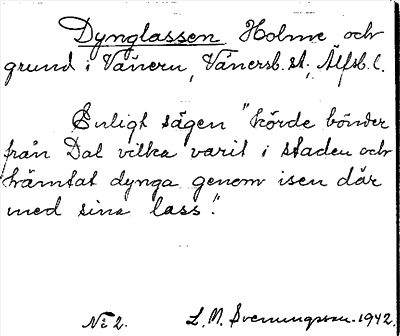 Dynglassen Holme och
grund i Vänern, Vänersb. st., Älfsb. l.
Enligt sägen "körde bönder
från Dal vilka varit i staden och
hämtat dynga genom isen där
med sina lass".
No 2. L. M. Svenungsson. 1942.